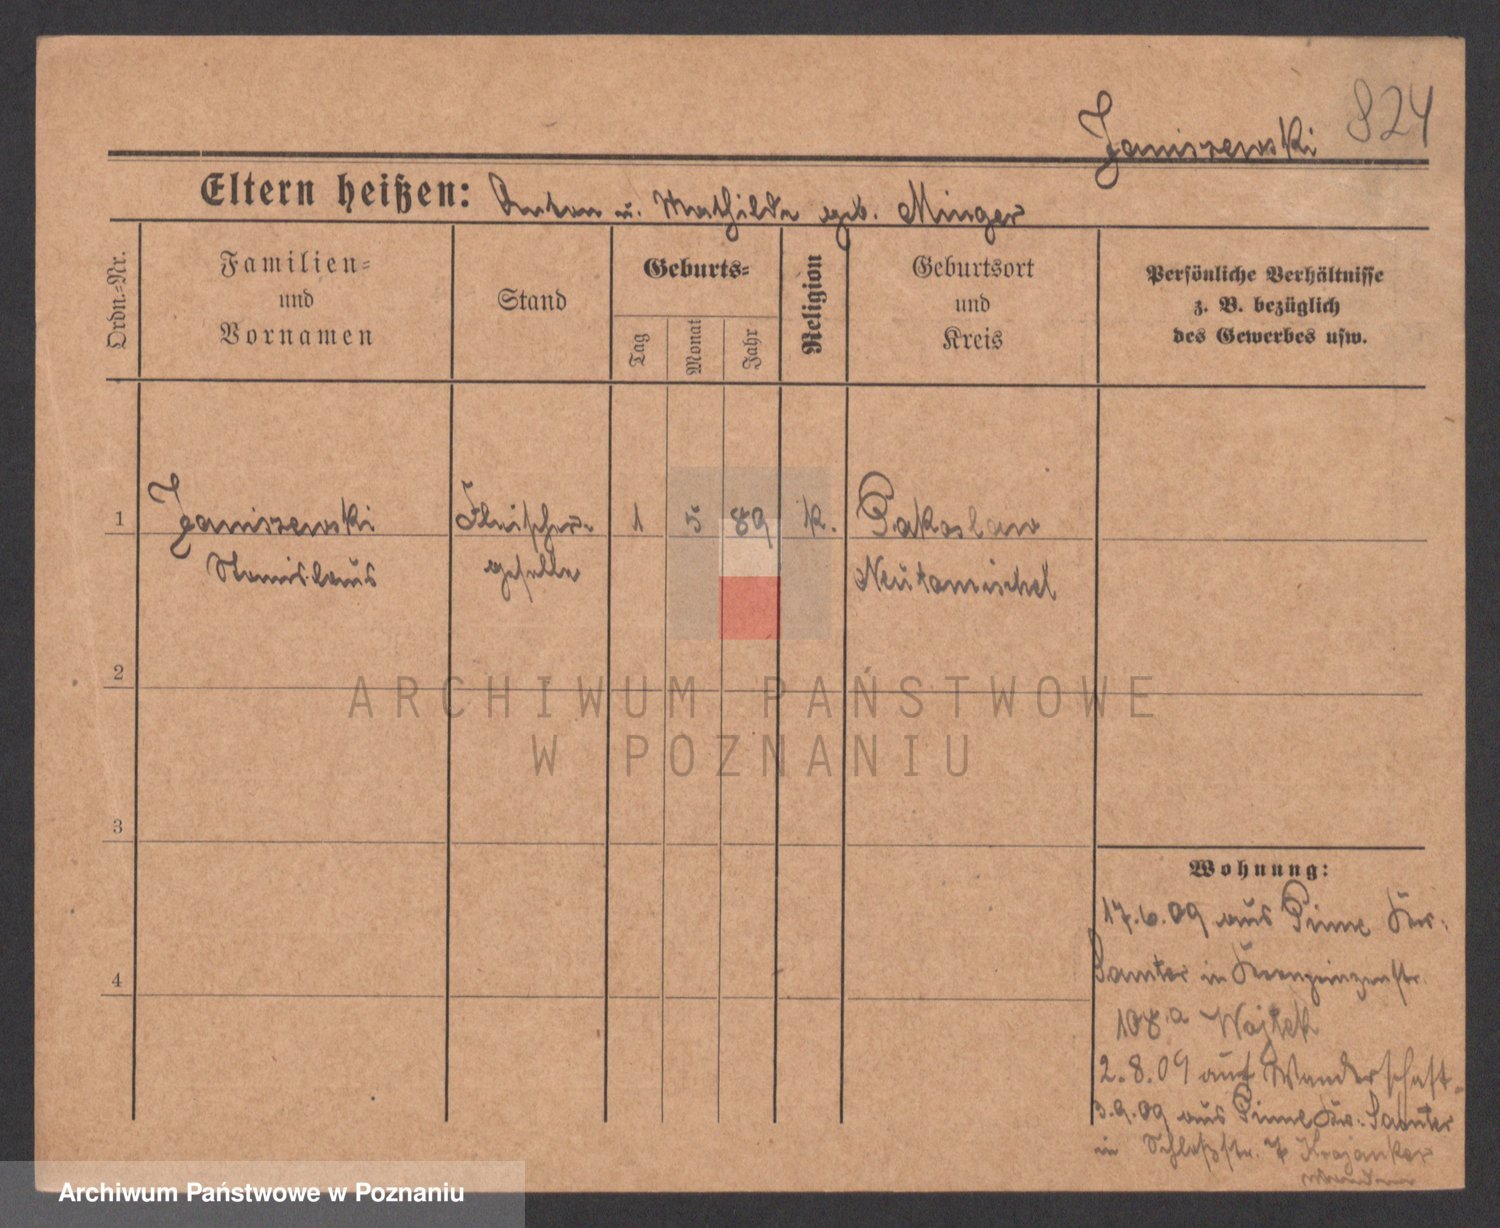 824
Janiszewski
Eltern heißen: Anton u. Mathilde geb. Minger
Ordn.-Nr.
Familien-
und
Vornamen
Stand
Geburts-
Tag
Monat
Jahr
Religion
Geburtsort
und
Kreis
Persönliche Verhältnisse
z. B. bezüglich
des Gewerbes usw.
1
Janiszewski
Stanislaus
Fleischer-
geselle
1
5
89
k.
Pakoslaw
Neutomischel
2
3
4
Wohnung:
17.6.09 aus Pinne Kr.
Samter in Kronprinzenstr.
108a Wojtek
2.8.09 auf Wanderschaft.
3.9.09 aus Pinne Kr. Samter
in Schloßstr. 7 Krojanker
ARCHIWUM PAŃSTWOWE
W POZNANIU
Archiwum Państwowe w Poznaniu